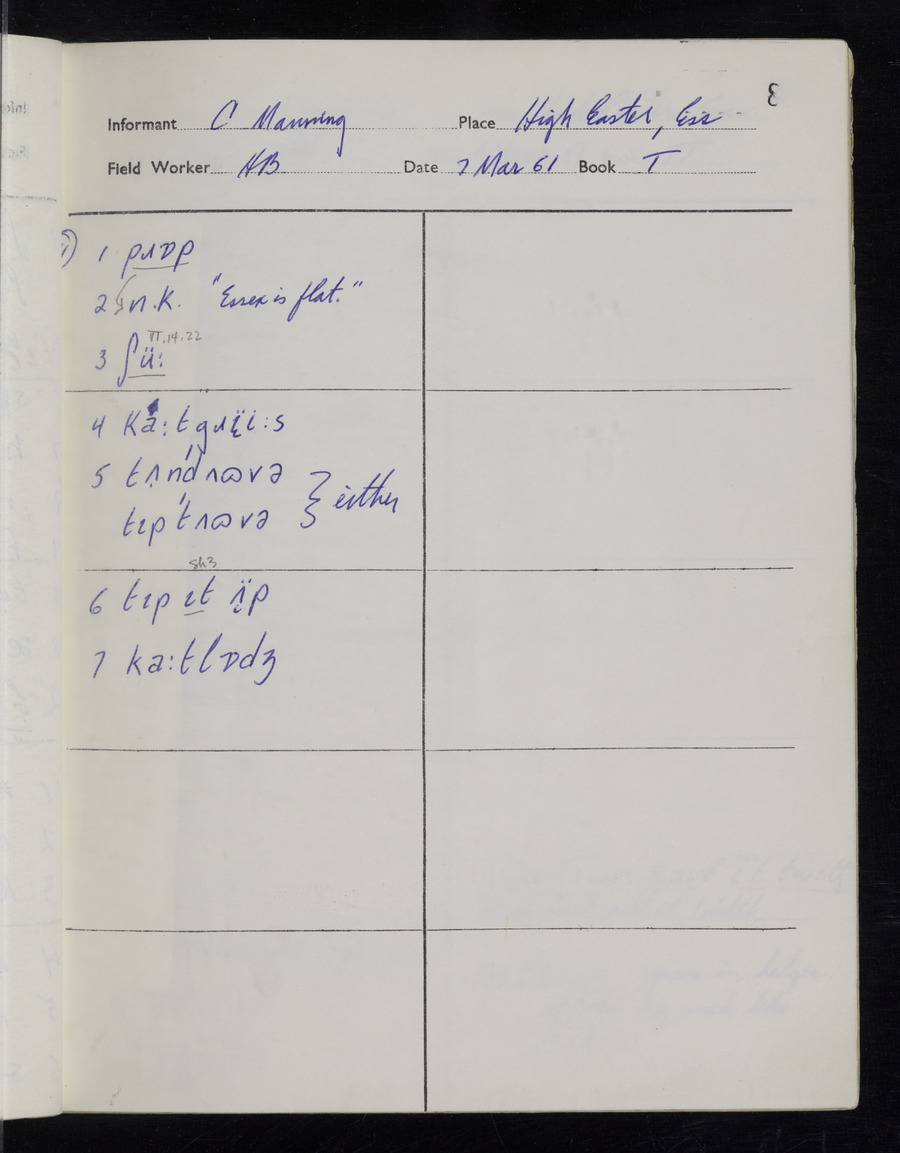 3
Informant C Manning Place High Easter, Ess
Field Worker HB Date 7 Mar 61 Book T
1 pɹɒp
2 n.k. "Essex is flat."
VI.14.22
3 ʃü:
4 ka:tgɹʌï:s
5 tʌndʌʊvə } either
tɪptʌʊvə
sh3
6 tɪp ɪt ʌ̈p
7 ka:tlɒdʒ